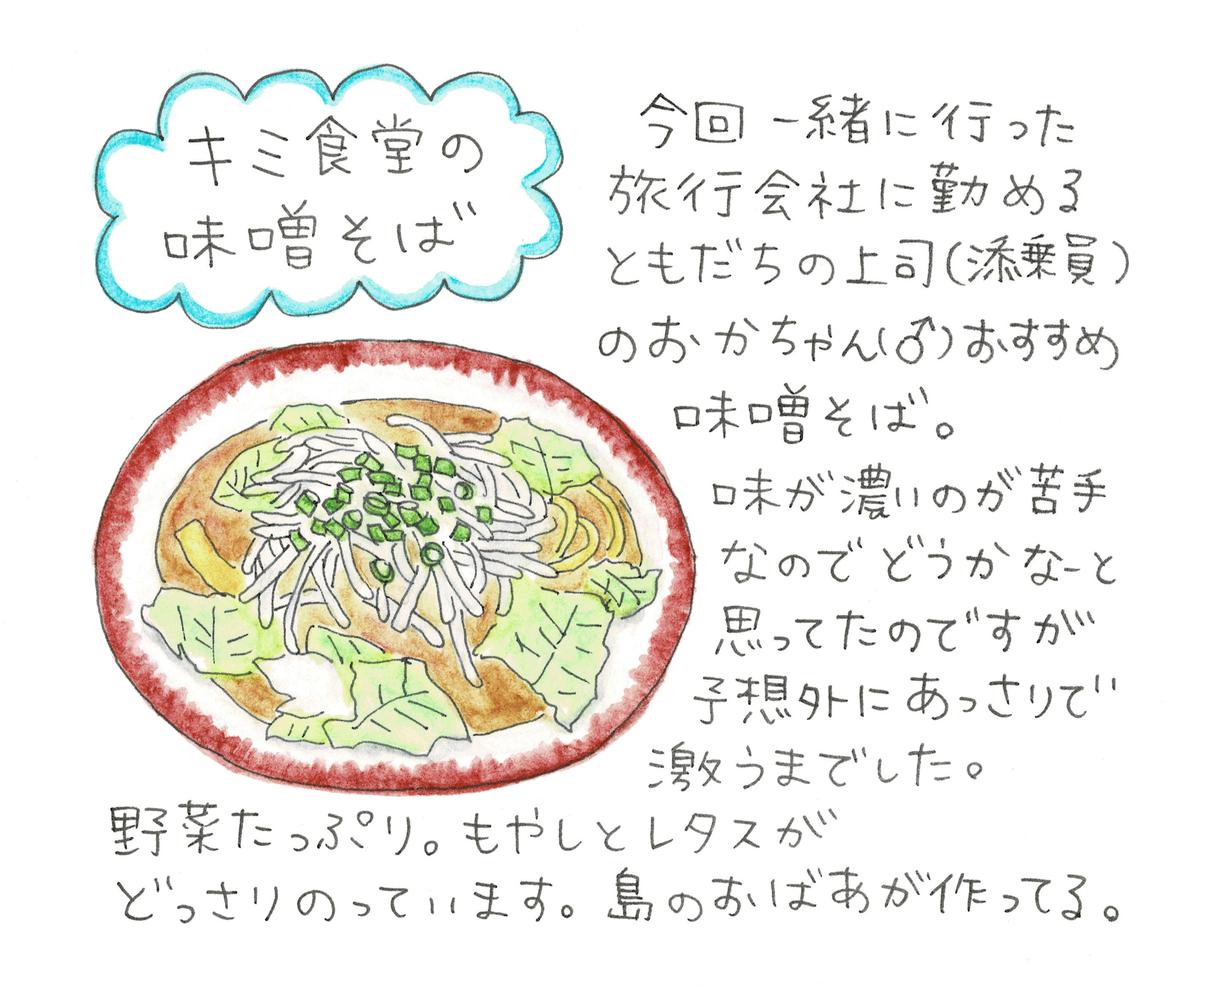 キミ食堂の
味噌そば
今回一緒に行った
旅行会社に勤める
ともだちの上司(添乗員)
のおかちゃん(♂)おすすめ
味噌そば。
味が濃いのが苦手
なのでどうかなーと
思ってたのですが
予想外にあっさりで
激うまでした。
野菜たっぷり。もやしとレタスが
どっさりのっています。島のおばあが作ってる。